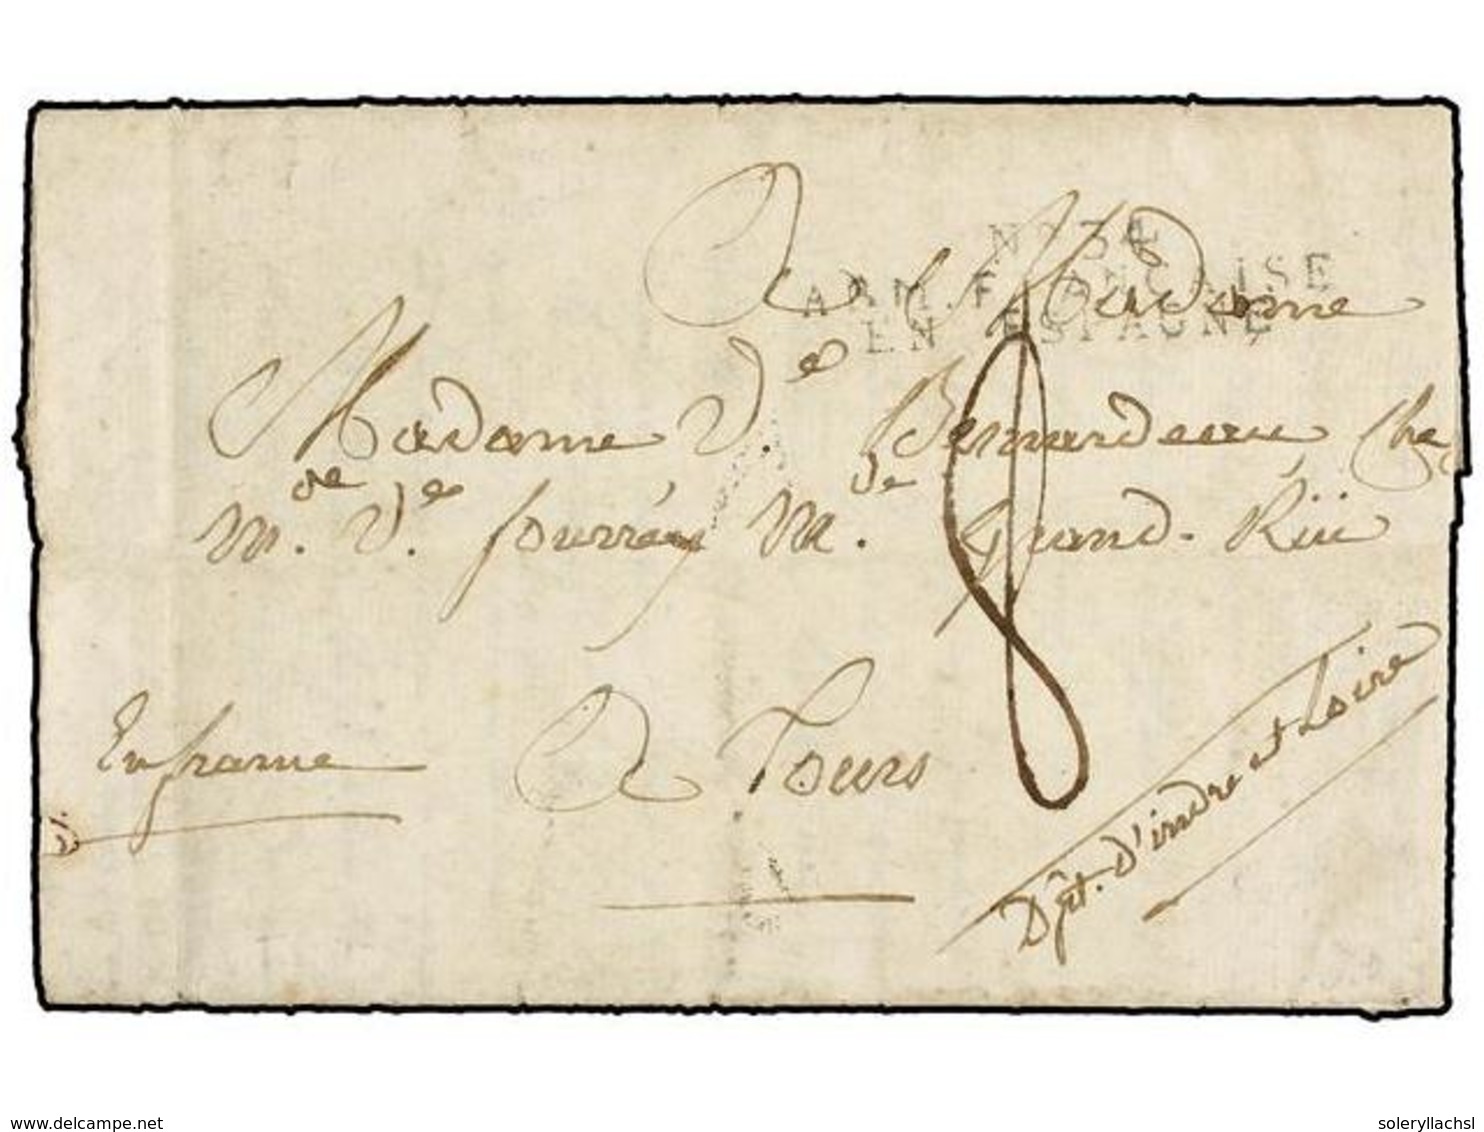 No 34
ARM. FRANÇAISE
EN ESPAGNE
A Madame
Madame V.e Bernardeau Che
M.de V.e fourrey M.de grand-Rüe
8
En france
A Tours
Dpt. D'indre et Loire
delcampe.net
soleryllachsl